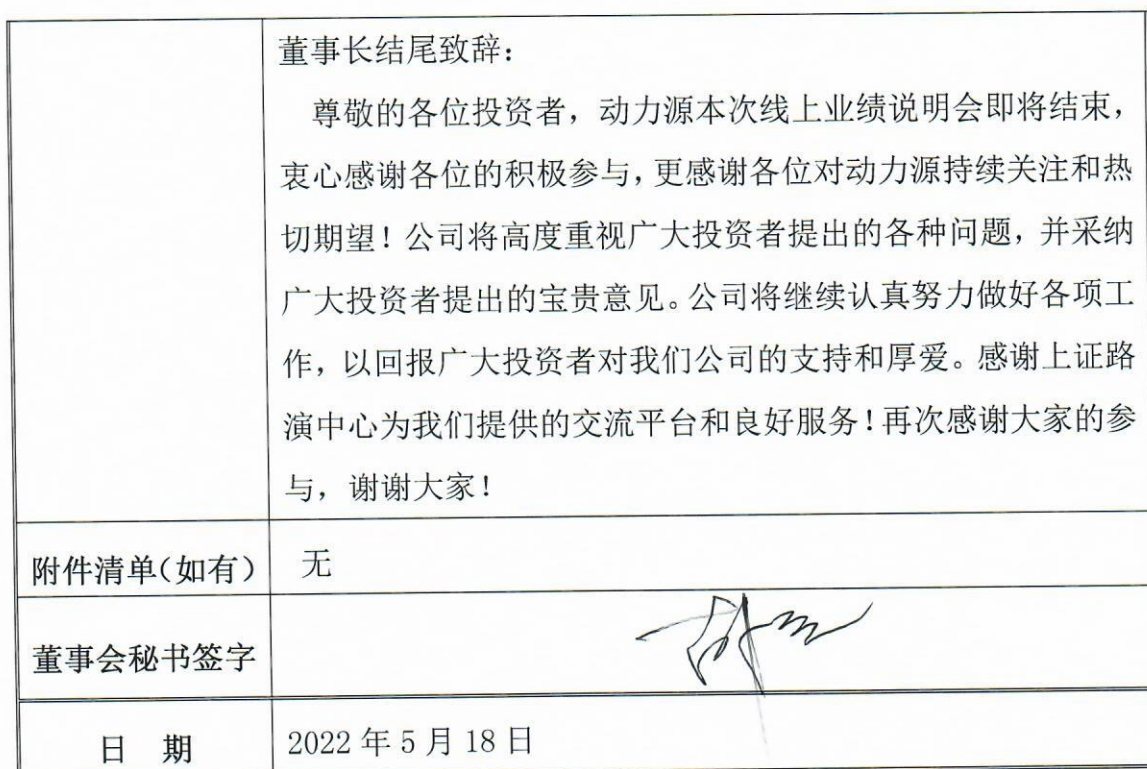 董事长结尾致辞：
尊敬的各位投资者，动力源本次线上业绩说明会即将结束，
衷心感谢各位的积极参与，更感谢各位对动力源持续关注和热
切期望！公司将高度重视广大投资者提出的各种问题，并采纳
广大投资者提出的宝贵意见。公司将继续认真努力做好各项工
作，以回报广大投资者对我们公司的支持和厚爱。感谢上证路
演中心为我们提供的交流平台和良好服务！再次感谢大家的参
与，谢谢大家！
附件清单（如有） 无
董事会秘书签字
日 期 2022 年 5 月 18 日